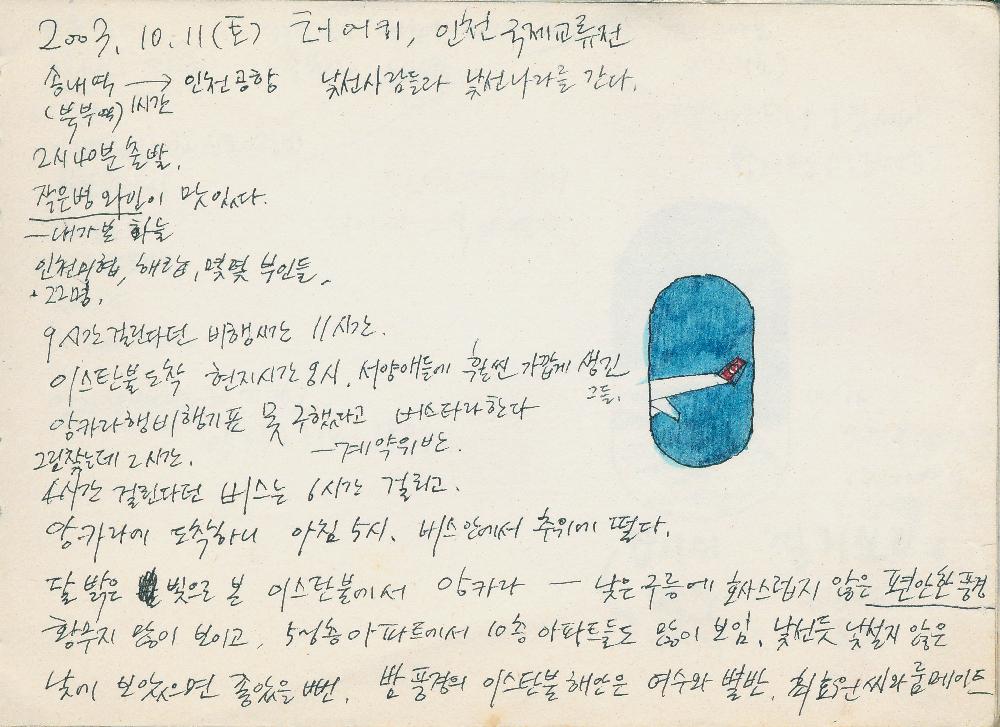 2003. 10. 11(토) 터어키, 인천 국제교류전
송내역 → 인천공항 낯선사람들과 낯선나라를 간다.
(북부역) 1시간
2시 40분 출발.
작은병 와인이 맛있다.
—내가본 하늘
인천미협, 해람, 몇몇 부인들.
· 22명.
9시간 걸린다던 비행시간 11시간.
이스탄불 도착 현지시간 8시. 서양애들에 훨씬 가깝게 생긴
그들.
앙카라행 비행기표 못 구했다고 버스타라한다
그림찾는데 2시간. —계약위반.
4시간 걸린다던 버스는 6시간 걸리고.
앙카라에 도착하니 아침 5시. 버스안에서 추위에 떨다.
달 밝은 빛으로 본 이스탄불에서 앙카라 — 낮은구릉에 호사스럽지 않은 편안한 풍경
황무지 많이 보이고, 5층아파트에서 10층 아파트들도 많이 보임. 낯선듯 낯설지 않은
낮에 보았으면 좋았을 뻔. 밤 풍경의 이스탄불 해안은 여수와 별반. 씨와 룸메이트